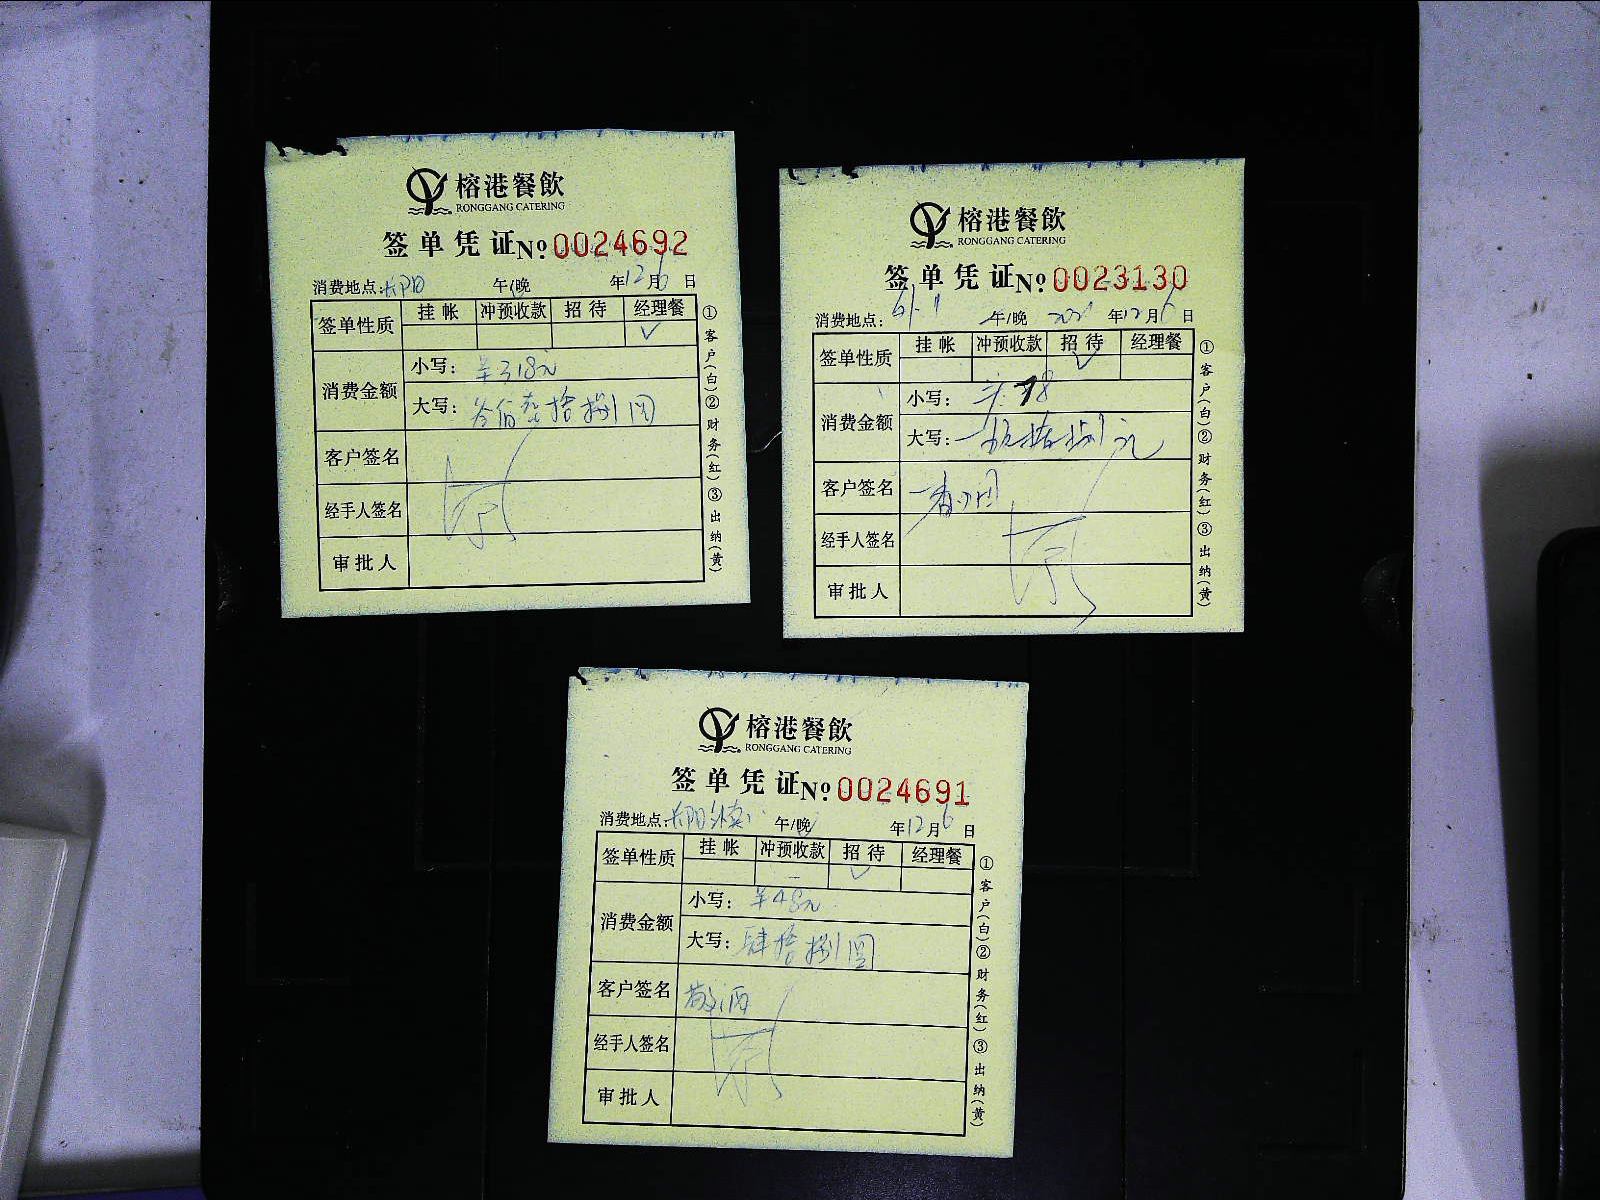 榕港餐飲
RONGGANG CATERING
签单凭证 № 0024692
消费地点: 午/晚 年12月6日
签单性质 挂帐 冲预收款 招待 经理餐
✓
消费金额 小写: ¥318元
大写: 叁佰壹拾捌圆
客户签名
经手人签名
审批人
①客户(白)②财务(红)③出纳(黄)
榕港餐飲
RONGGANG CATERING
签单凭证 № 0023130
消费地点: 午/晚 年12月6日
签单性质 挂帐 冲预收款 招待 经理餐
✓
消费金额 小写: 78
大写: 拾捌元
客户签名
经手人签名
审批人
①客户(白)②财务(红)③出纳(黄)
榕港餐飲
RONGGANG CATERING
签单凭证 № 0024691
消费地点: 午/晚 年12月6日
签单性质 挂帐 冲预收款 招待 经理餐
✓
消费金额 小写: ¥48元
大写: 肆拾捌圆
客户签名 敬酒
经手人签名
审批人
①客户(白)②财务(红)③出纳(黄)